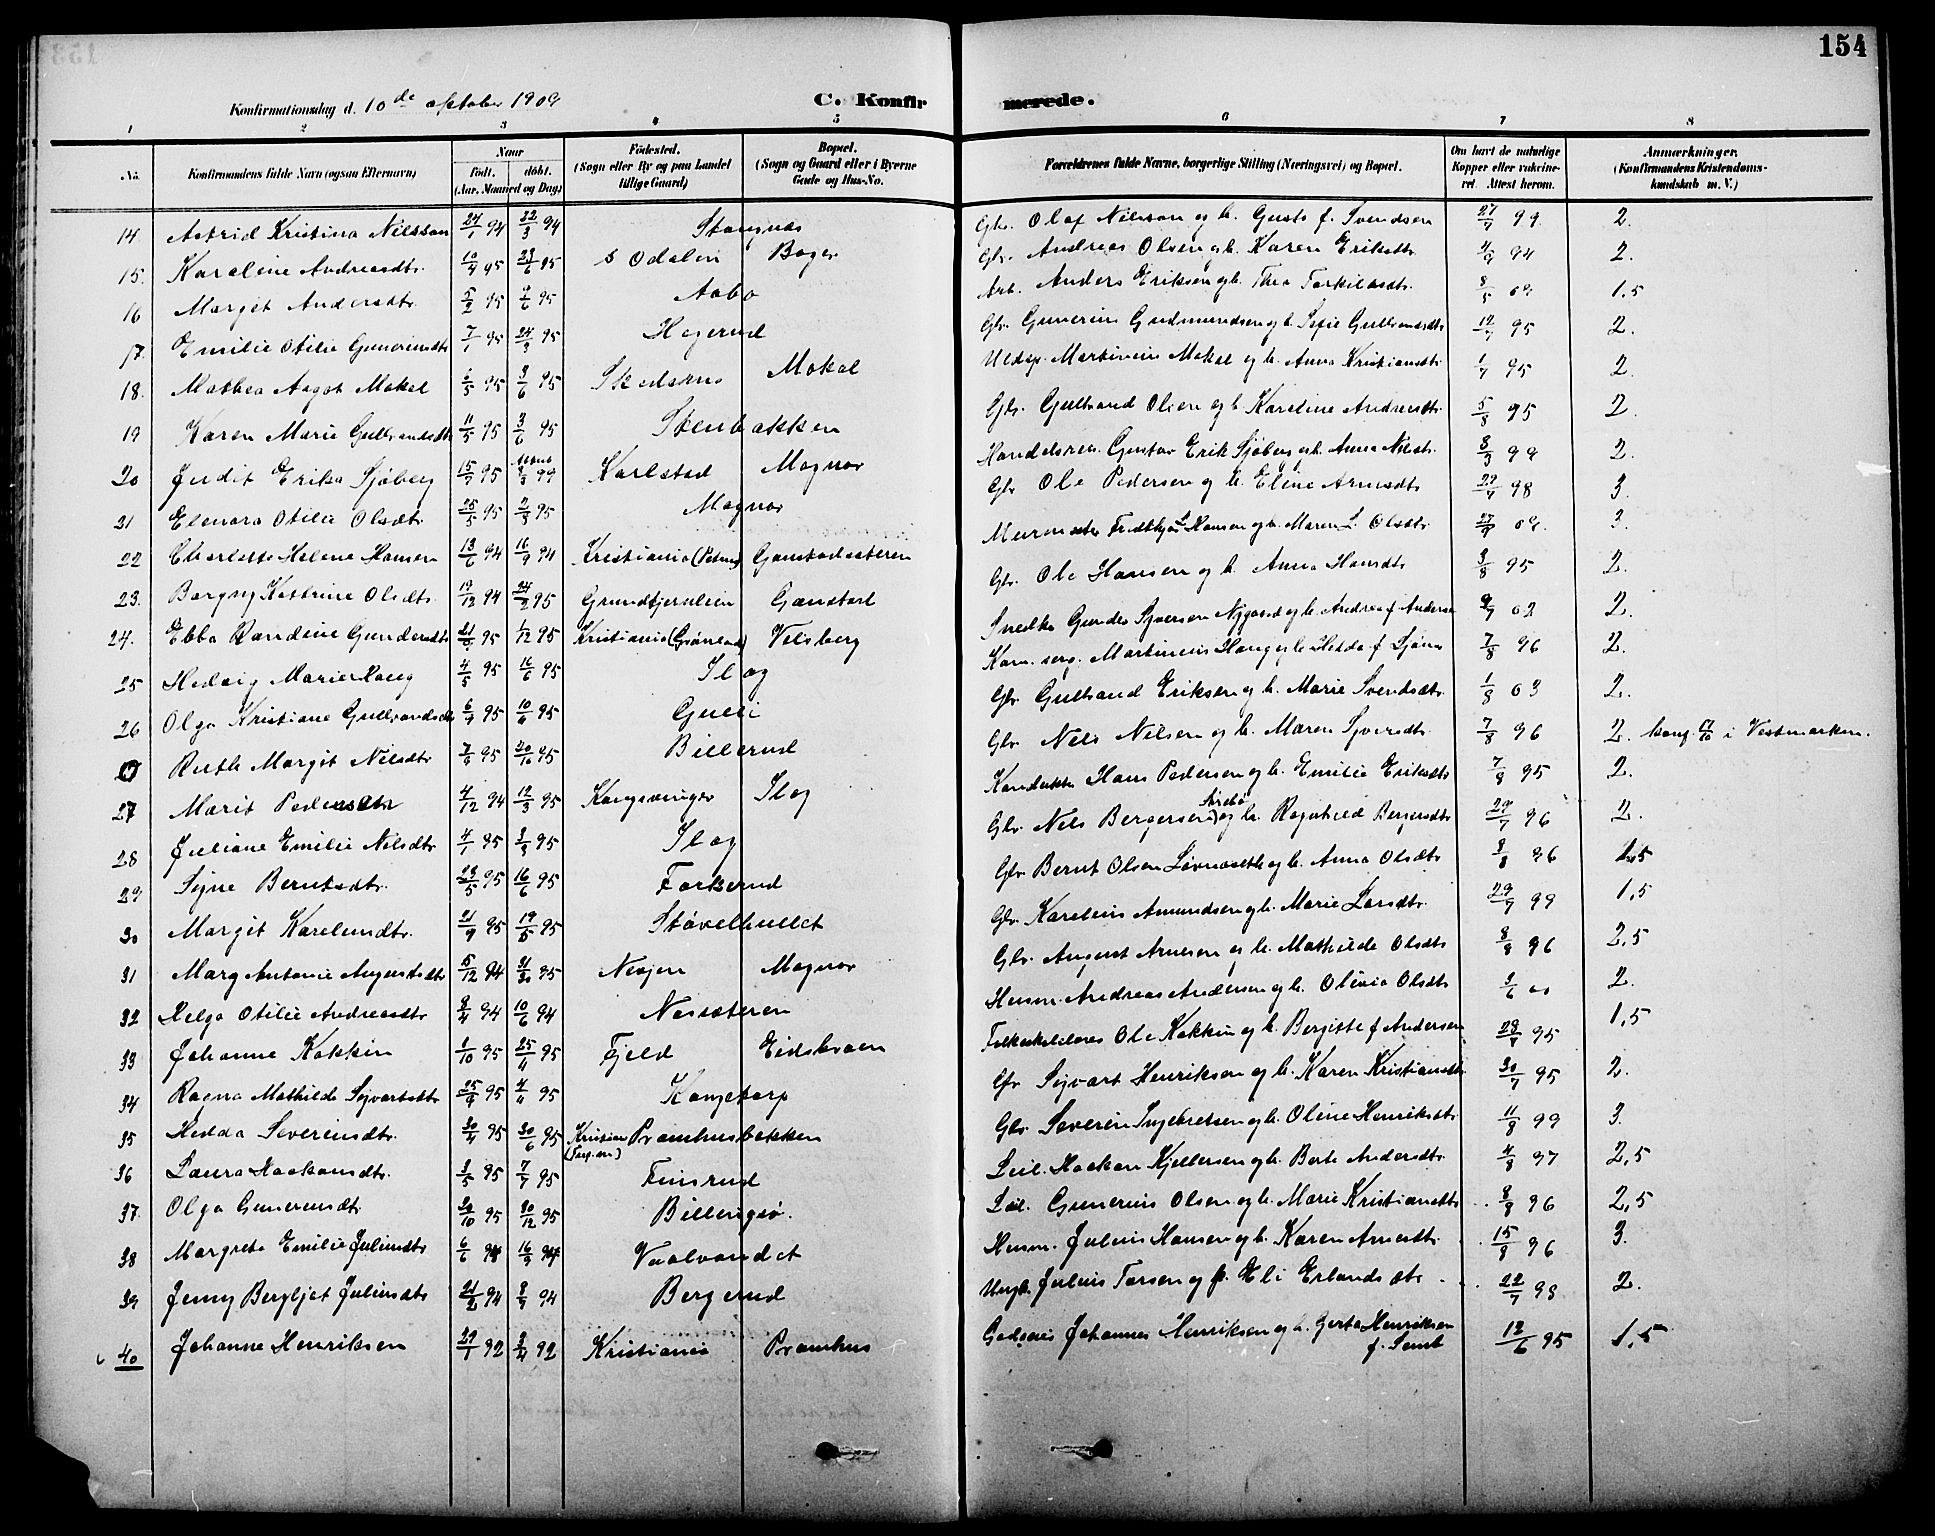 154
Konfirmationsdag d. 10de oktober 1909
C. Konfirmerede.
1 2 3 4 5 6 7 8
No. Konfirmandens fulde Navn (ogsaa Efternavn) Naar Födt. döbt. (Aar, Maaned og Dag) Födested. (Sogn eller By og paa Landet tillige Gaard) Bopæl. (Sogn og Gaard eller i Byerne Gade og Hus-No. Forældrenes fulde Navne, borgerlige Stilling (Næringsvei) og Bopæl. Om havt de naturlige Kopper eller vakcineret. Attest herom. Anmærkninger. (Konfirmandens Kristendomskundskab m. V.)
14. Astrid Kristina Nilsson 27/1 94 22/3 94 Stangnæs Gbr. Olaf Nilsson og h. f. Svendsen 27/7 99. 2.
15. Karoline Andreasdtr. 10/4 95 23/6 95 S Odalen Boger Gbr. Andreas Olsen og h. Karen Eriksdtr. 4/9 94 2.
16 Margit Andersdtr. 5/2 95 4/6 95 Aabo Arb. Anders Eriksen og h. Thea Torkildsdtr. 8/5 09 1,5
17. Emilie Otilie Guneriusdtr. 7/1 95 24/3 95 Hagerud Gbr. Gunerius Gudmundsen og h. Sofie Gulbrandsdtr 12/7 95 2.
18. Mathea Aagot Mokal 95 3/6 95 Skedsmo Mokal Martinius Mokal og h. Anna Kristiansdtr. 1/7 95 2.
19 Karen Marie Gulbrandsdtr 11/5 95 3/6 95 Stenbakken Gbr. Gulbrand Olsen og h. Karoline Andreasdtr. 5/8 95 2.
20 Judit Erika Sjöberg 15/7 95 99 Karlstad Magnor Handelsrei. Gustav Erik Sjöberg og h. Anna Nilsdtr. 8/3 99 2.
21 Elenora Otilie Olsdtr. 25/5 95 95 Magnor Gbr Ole Pedersen og h. Eline Arnesdtr 98 3.
22 Charlotte Helene Hansen 13/6 94 16/9 94 Kristiania (Petrus) Ganstadsæteren Murmester Fridthjof Hansen og h. Maren L. Olsdtr. 09. 3.
23. Borgny Katrine Olsdtr. 19/12 94 24/2 95 Grundtjernlien Ganstad Gbr. Ole Hansen og h. Anna Hansdtr 3/8 95 2.
24. Ebba Randine Gundersdtr 21/9 95 1/12 95 Kristiania (Grønland) Velsberg Snedker Gunder Syversen Nygaard og h. Andrea f. Andersen 02 2.
25 Hedvig Marie Haug 4/5 95 16/6 95 Slag Kom. serg. Martinius Haug og h. Hilda f. 7/8 96 2.
26 Olga Kristiane Gulbrandsdtr 6/4 95 10/6 95 Gulli Gbr Gulbrand Eriksen og h. Marie Svendsdtr. 1/8 03 2.
Ruth Margit Nilsdtr 95 20/10 95 Billerud Gbr Nils Nilsen og h. Maren Syversdtr. 7/8 96 2. konf. i Vestmarken.
27 Marit Pedersdtr 4/12 94 12/3 95 Kongsvinger Slag Konduktør Hans Pedersen og h. Emilie Eriksdtr 7/8 95 2.
28 Juliane Emilie Nilsdtr 4/1 95 3/3 95 Slag Gbr. Nils Bergersen og h. Ragnhild Bergersdtr 29/7 96 2.
29 Signe Berntsdtr. 23/5 95 16/6 95 Torkerud Gbr Bernt Olsen og h. Anna Olsdtr 8/8 96 1,5
30 Margit Karelinsdtr. 21/4 95 19/5 95 Støvelhullet Gbr. Karelius Amundsen og h. Marie Larsdtr. 29/7 99 1,5
31 Marg Antonie Augustsdtr 5/12 94 95 Nesjen Magnor Gbr. August Arnesen og h. Mathilde Olsdtr 8/8 96 2,5
32 Helga Otilie Andreasdtr 8/4 94 10/6 94 Næssæteren Husm. Andreas Andersen og h. Olivia Olsdtr 3/6 00 2.
33 Johanne Kokkin 1/10 95 25/11 95 Fjeld Eidsbraaen Folkeskolelærer Ole Kokkin og h. Bergitte f Andersen 28/7 95 1,5
34 Ragna Mathilde Sigvartsdtr 25/9 95 4/11 95 Kongetorp Gbr Sigvart Henriksen og h. Karen Kristiansdtr. 30/7 95 2.
35 Hedda Severinsdtr. 30/4 95 30/6 95 Pramhusbakken Gbr. Severin Ingebretsen og h. Oline Henriksdtr. 11/8 99 3.
36 Laura Haakonsdtr. 3/5 95 7/7 95 Finsrud Leil. Haakon Kjellersen og h. Berte Andersdtr. 4/8 97 2,5
37. Olga Guneriusdtr. 30/10 95 30/12 95 Billingsø. Leil. Gunerius Olsen og h. Marie Kristiansdtr. 8/8 96 2,5
38 Margrete Emilie Juliusdtr 6/6 94 16/9 94 Vaalvandet Husm. Julius Hansen og h. Karen Arnesdtr. 15/8 96 3.
39 Jenny Bergljot Juliusdtr 21/2 94 94 Bergerud Ungk. Julius Torsen og p. Eli Erlandsdtr 22/7 98 2.
40 Johanne Henriksen 29/1 92 92 Kristiania Pramhus Godseier Johannes Henriksen og h. Gerta Henriksen f. Semb 12/6 95 1,5